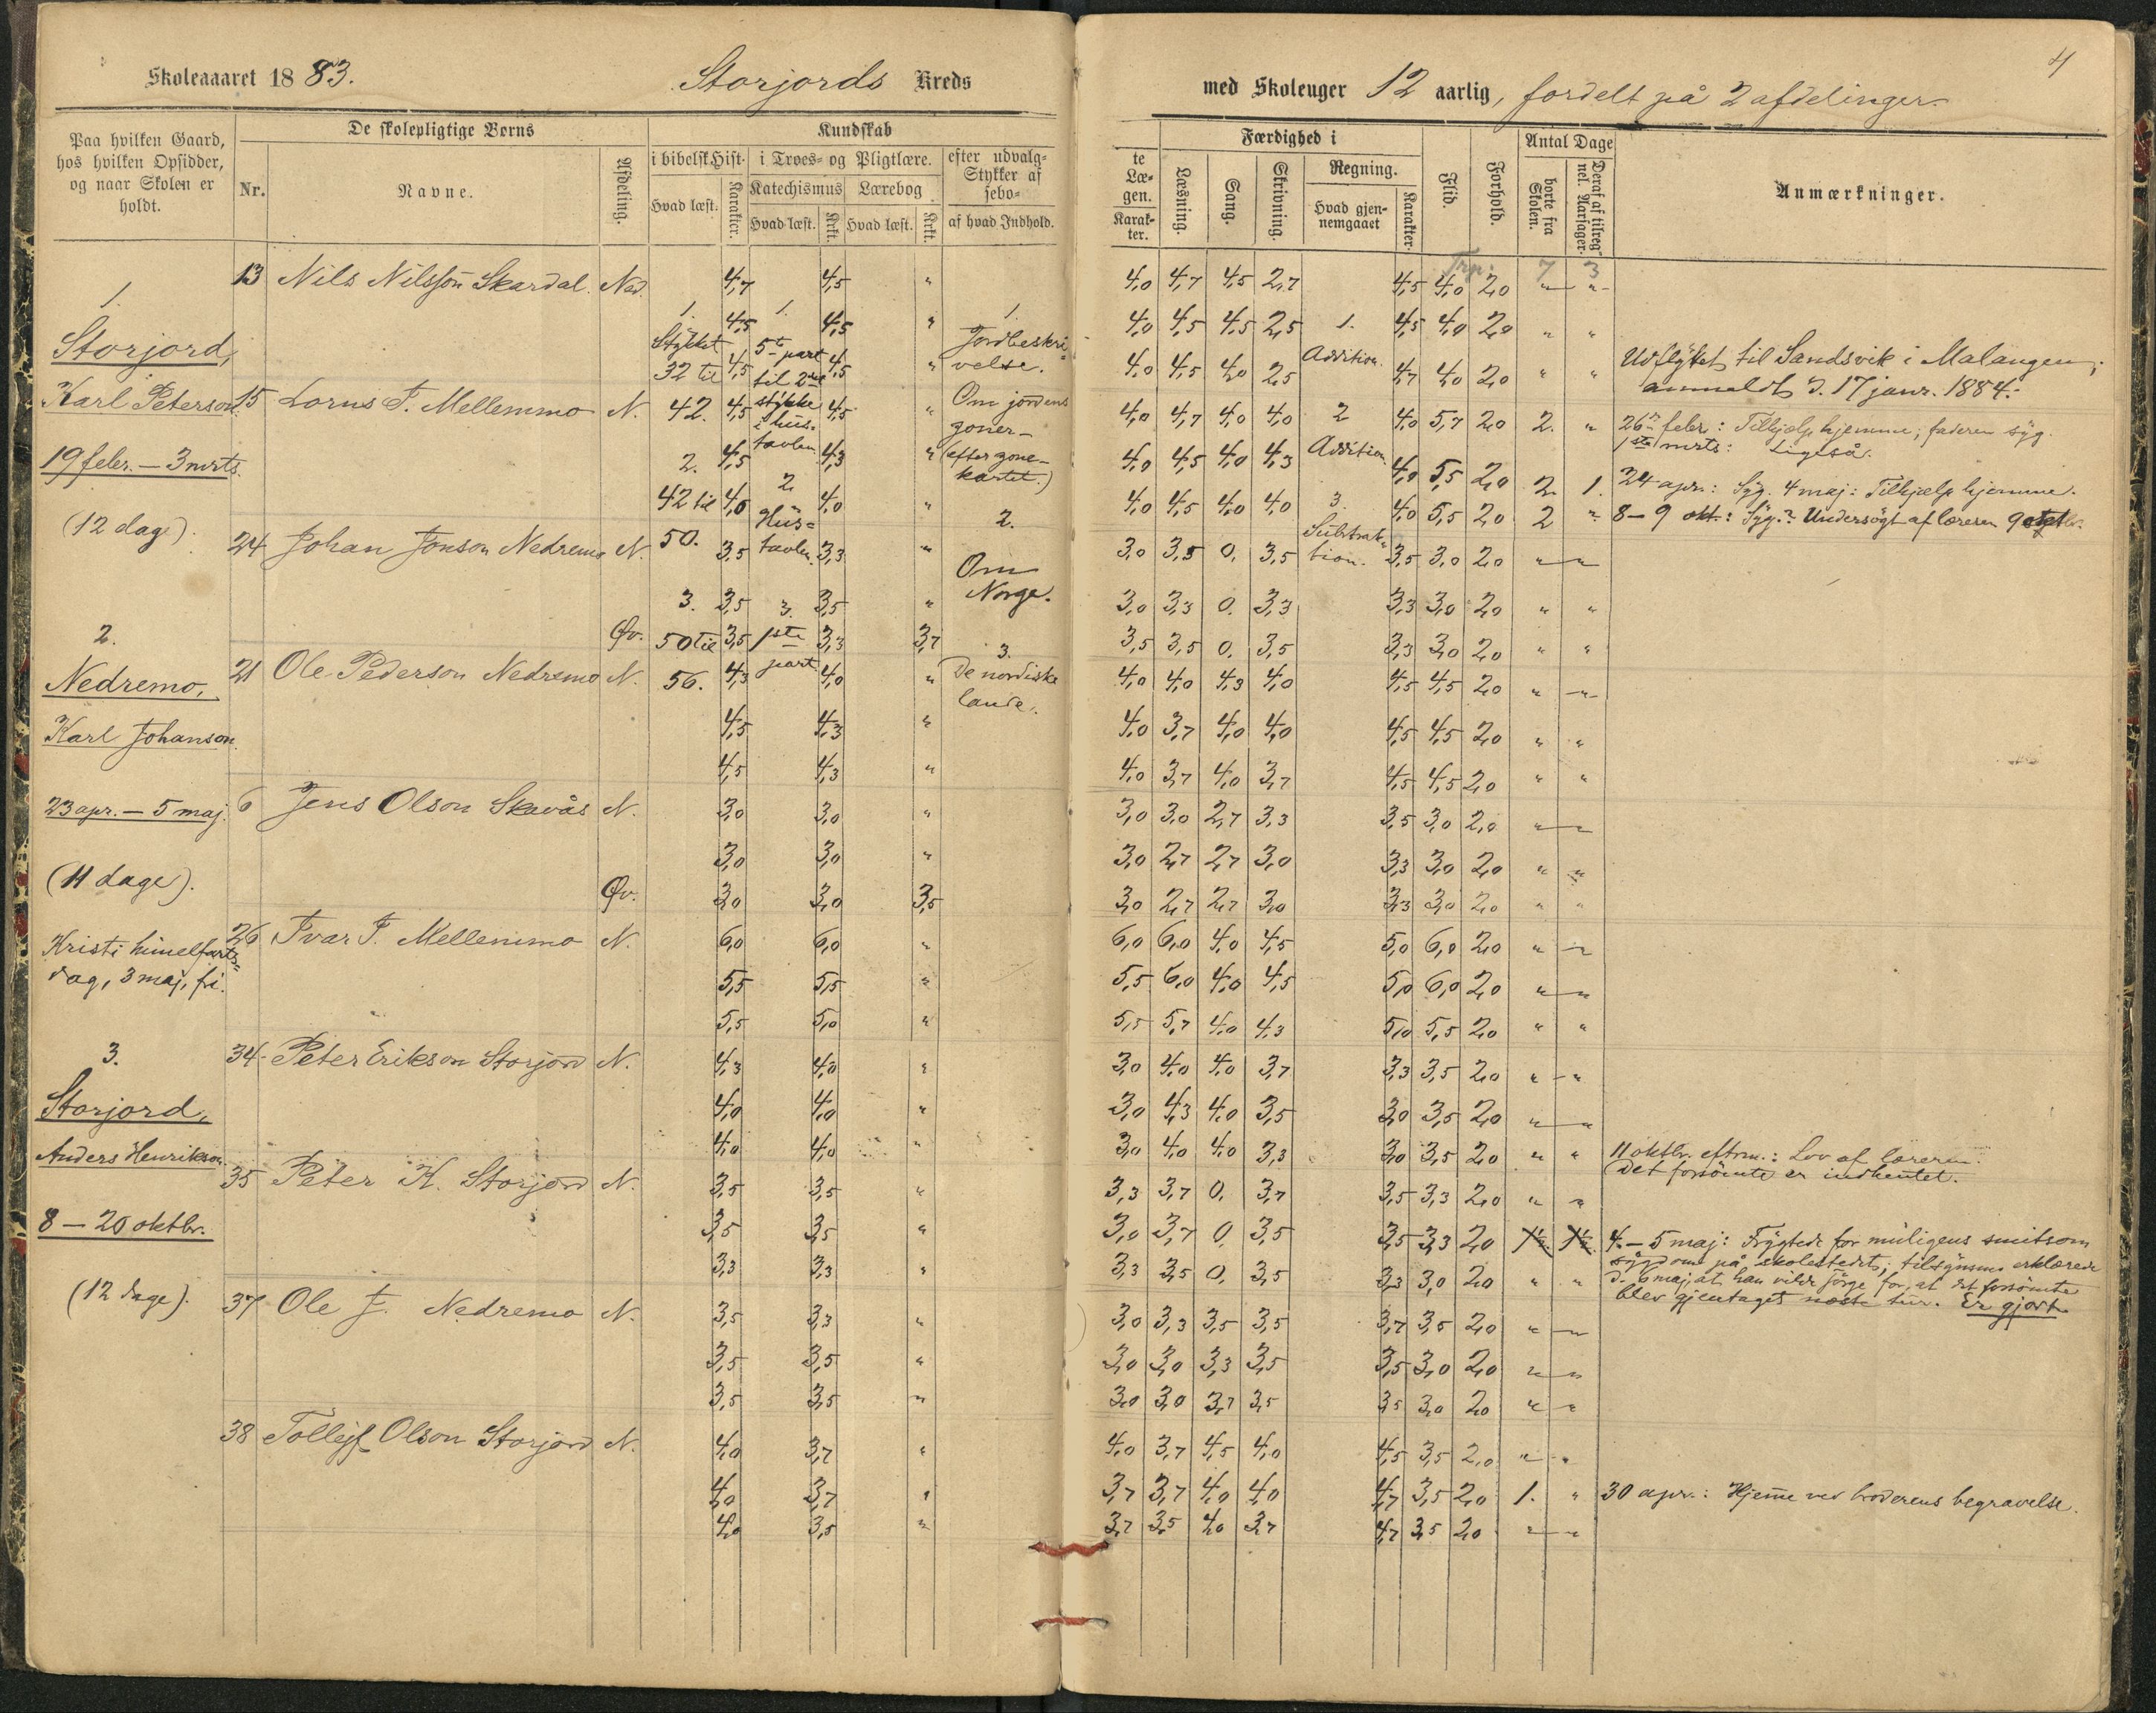 Skoleaaret 1883.
Storjords Kreds
med Skoleuger 12 aarlig, fordelt på 2 afdelinger.
4
Paa hvilken Gaard,
hos hvilken Opsidder,
og naar Skolen er
holdt.
De skolepligtige Børns
Nr.
Navne.
Afdeling.
Kundskab
i bibelsk Hist.
Hvad læst.
Karakter.
i Troes- og Pligtlære.
Katechismus
Hvad læst.
Krkt.
Lærebog
Hvad læst.
Krkt.
efter udvalg-
Stykker af
sebo-
af hvad Indhold.
te
Læ-
gen.
Karak-
ter.
Færdighed i
Læsning.
Sang.
Skrivning.
Regning.
Hvad gjen-
nemgaaet
Karakter.
Flid.
Forhold.
Antal Dage
borte fra
Skolen.
Deraf af tilreg
nel. Aarsager.
Anmærkninger.
1.
Storjord,
Karl Peterson.
19 febr. — 3 mrts.
(12 dage).
2.
Nedremo,
Karl Johanson.
23 apr. — 5 maj.
(11 dage).
Kristi himelfarts-
dag, 3 maj, fri.
3.
Storjord,
Anders Henrikson.
8 — 20 oktbr.
(12 dage).
1.
Stykket
32 til
42.
2.
42 til
50.
3.
50 til
56.
1.
5te part
til 2det
stykke
i hus-
tavlen
2.
Hus-
tavlen.
3.
1ste
part.
1.
Jordbeskri-
velse.
Om jordens
zoner
(efter zone-
kartet.)
2.
Om
Norge.
3.
De nordiske
lande.
1.
Addition.
2
Addition.
3.
Subtrak-
tion.
13 Nils Nilsson Skardal. Ned. 4,7 4,5 " 4,0 4,7 4,5 2,7 4,5 4,0 2,0 " " 7 3
4,5 4,5 " 4,0 4,5 4,5 2,5 4,5 4,0 2,0 " "
4,5 4,5 " 4,0 4,5 4,0 2,5 4,7 4,0 2,0 " " Udflyttet til Sandsvik i Malangen;
anmeldt d. 17 janr. 1884.
15 Lorns J. Mellemmo N. 4,5 4,5 " 4,0 4,7 4,0 4,0 4,0 5,7 2,0 2. " 26 febr: Tilhjælp hjemme; faderen syg.
1ste mrts: Ligeså.
4,5 4,3 " 4,0 4,5 4,0 4,3 4,0 5,5 2,0 2 1. 24 apr.: Syg. 4 maj: Tilhjælp hjemme.
4,0 4,0 " 4,0 4,5 4,0 4,0 4,0 5,5 2,0 2 " 8 — 9 okt.: Syg.? Undersögt af læreren 9
24 Johan Jonson Nedremo N. 3,5 3,3 " 3,0 3,5 0, 3,5 3,5 3,0 2,0 " "
3,5 3,5 " 3,0 3,3 0, 3,3 3,3 3,0 2,0 " "
Øv. 3,5 3,3 3,7 3,5 3,5 0, 3,5 3,3 3,0 2,0 " "
21 Ole Pederson Nedremo N. 4,3 4,0 " 4,0 4,0 4,3 4,0 4,5 4,5 2,0 " "
4,5 4,3 " 4,0 3,7 4,0 4,0 4,5 4,5 2,0 " "
4,5 4,3 " 4,0 3,7 4,0 3,7 4,5 4,5 2,0 " "
6 Jens Olson Skavås N. 3,0 3,0 " 3,0 3,0 2,7 3,3 3,5 3,0 2,0 " "
3,0 3,0 " 3,0 2,7 2,7 3,0 3,3 3,0 2,0 " "
Øv. 3,0 3,0 3,5 3,0 2,7 2,7 3,0 3,3 3,0 2,0 " "
26 Ivar J. Mellemmo N. 6,0 6,0 " 6,0 6,0 4,0 4,5 5,0 6,0 2,0 " "
5,5 5,5 " 5,5 6,0 4,0 4,5 5,0 6,0 2,0 " "
5,5 5,0 " 5,5 5,7 4,0 4,3 5,0 5,5 2,0 " "
34 Peter Erikson Storjord N. 4,3 4,0 " 3,0 4,0 4,0 3,7 3,3 3,5 2,0 " "
4,0 4,0 " 3,0 4,3 4,0 3,5 3,0 3,5 2,0 " "
4,0 4,0 " 3,0 4,0 4,0 3,3 3,0 3,5 2,0 " " 11 oktbr. eftrm.: Lov af læreren.
Det forsömte er indhentet.
35 Peter K. Storjord N. 3,5 3,5 " 3,3 3,7 0, 3,7 3,5 3,3 2,0 " "
3,5 3,5 " 3,0 3,7 0, 3,5 3,5 3,3 2,0 1½ 1½ 4. — 5 maj: Frygtede for muligens smitsom
sygdom på skolestedet; tilsynsm. erklærede
d. 6 maj, at han vilde sörge for, at det forsömte
blev gjentaget næste tur. Er gjort.
3,3 3,3 " 3,3 3,5 0, 3,5 3,3 3,0 2,0 " "
37 Ole J. Nedremo N. 3,5 3,3 " 3,0 3,3 3,5 3,5 3,7 3,5 2,0 " "
3,5 3,5 " 3,0 3,0 3,3 3,5 3,5 3,0 2,0 " "
3,5 3,5 " 3,0 3,0 3,7 3,5 3,5 3,0 2,0 " "
38 Tollejf Olson Storjord N. 4,0 3,7 " 4,0 3,7 4,5 4,0 4,5 3,5 2,0 " "
4,0 3,7 " 3,7 3,7 4,0 4,0 4,7 3,5 2,0 1. " 30 apr.: Hjeme ved broderens begravelse.
4,0 3,5 " 3,7 3,5 4,0 3,7 4,7 3,5 2,0 " "